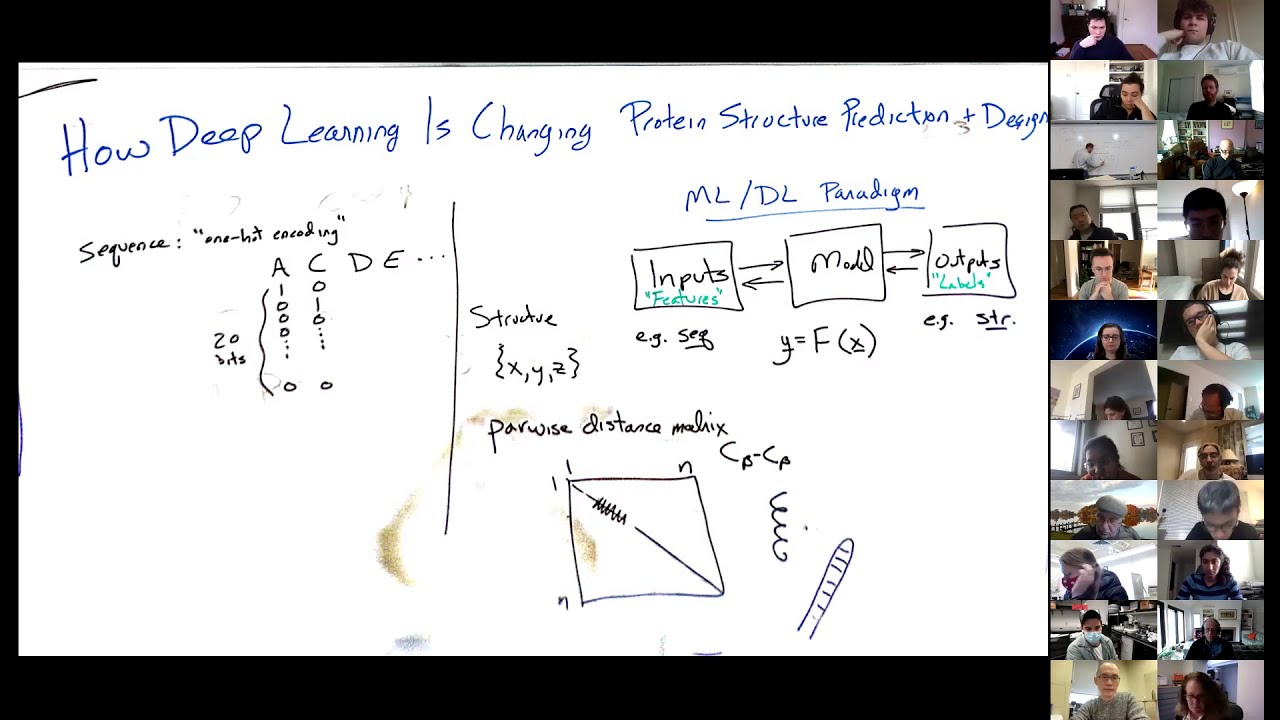 How Deep Learning Is Changing Protein Structure Prediction + Design
Sequence: "one-hot encoding"
A C D E ...
1 0
0 1
0 0
0 :
: :
0 0
20
bits
Structure
{x,y,z}
parwise distance matrix
Cβ-Cβ
1 n
1
n
ML/DL Paradigm
Inputs
"Features"
Model
Outputs
"Labels"
e.g. seq
y=F(x)
e.g. str.